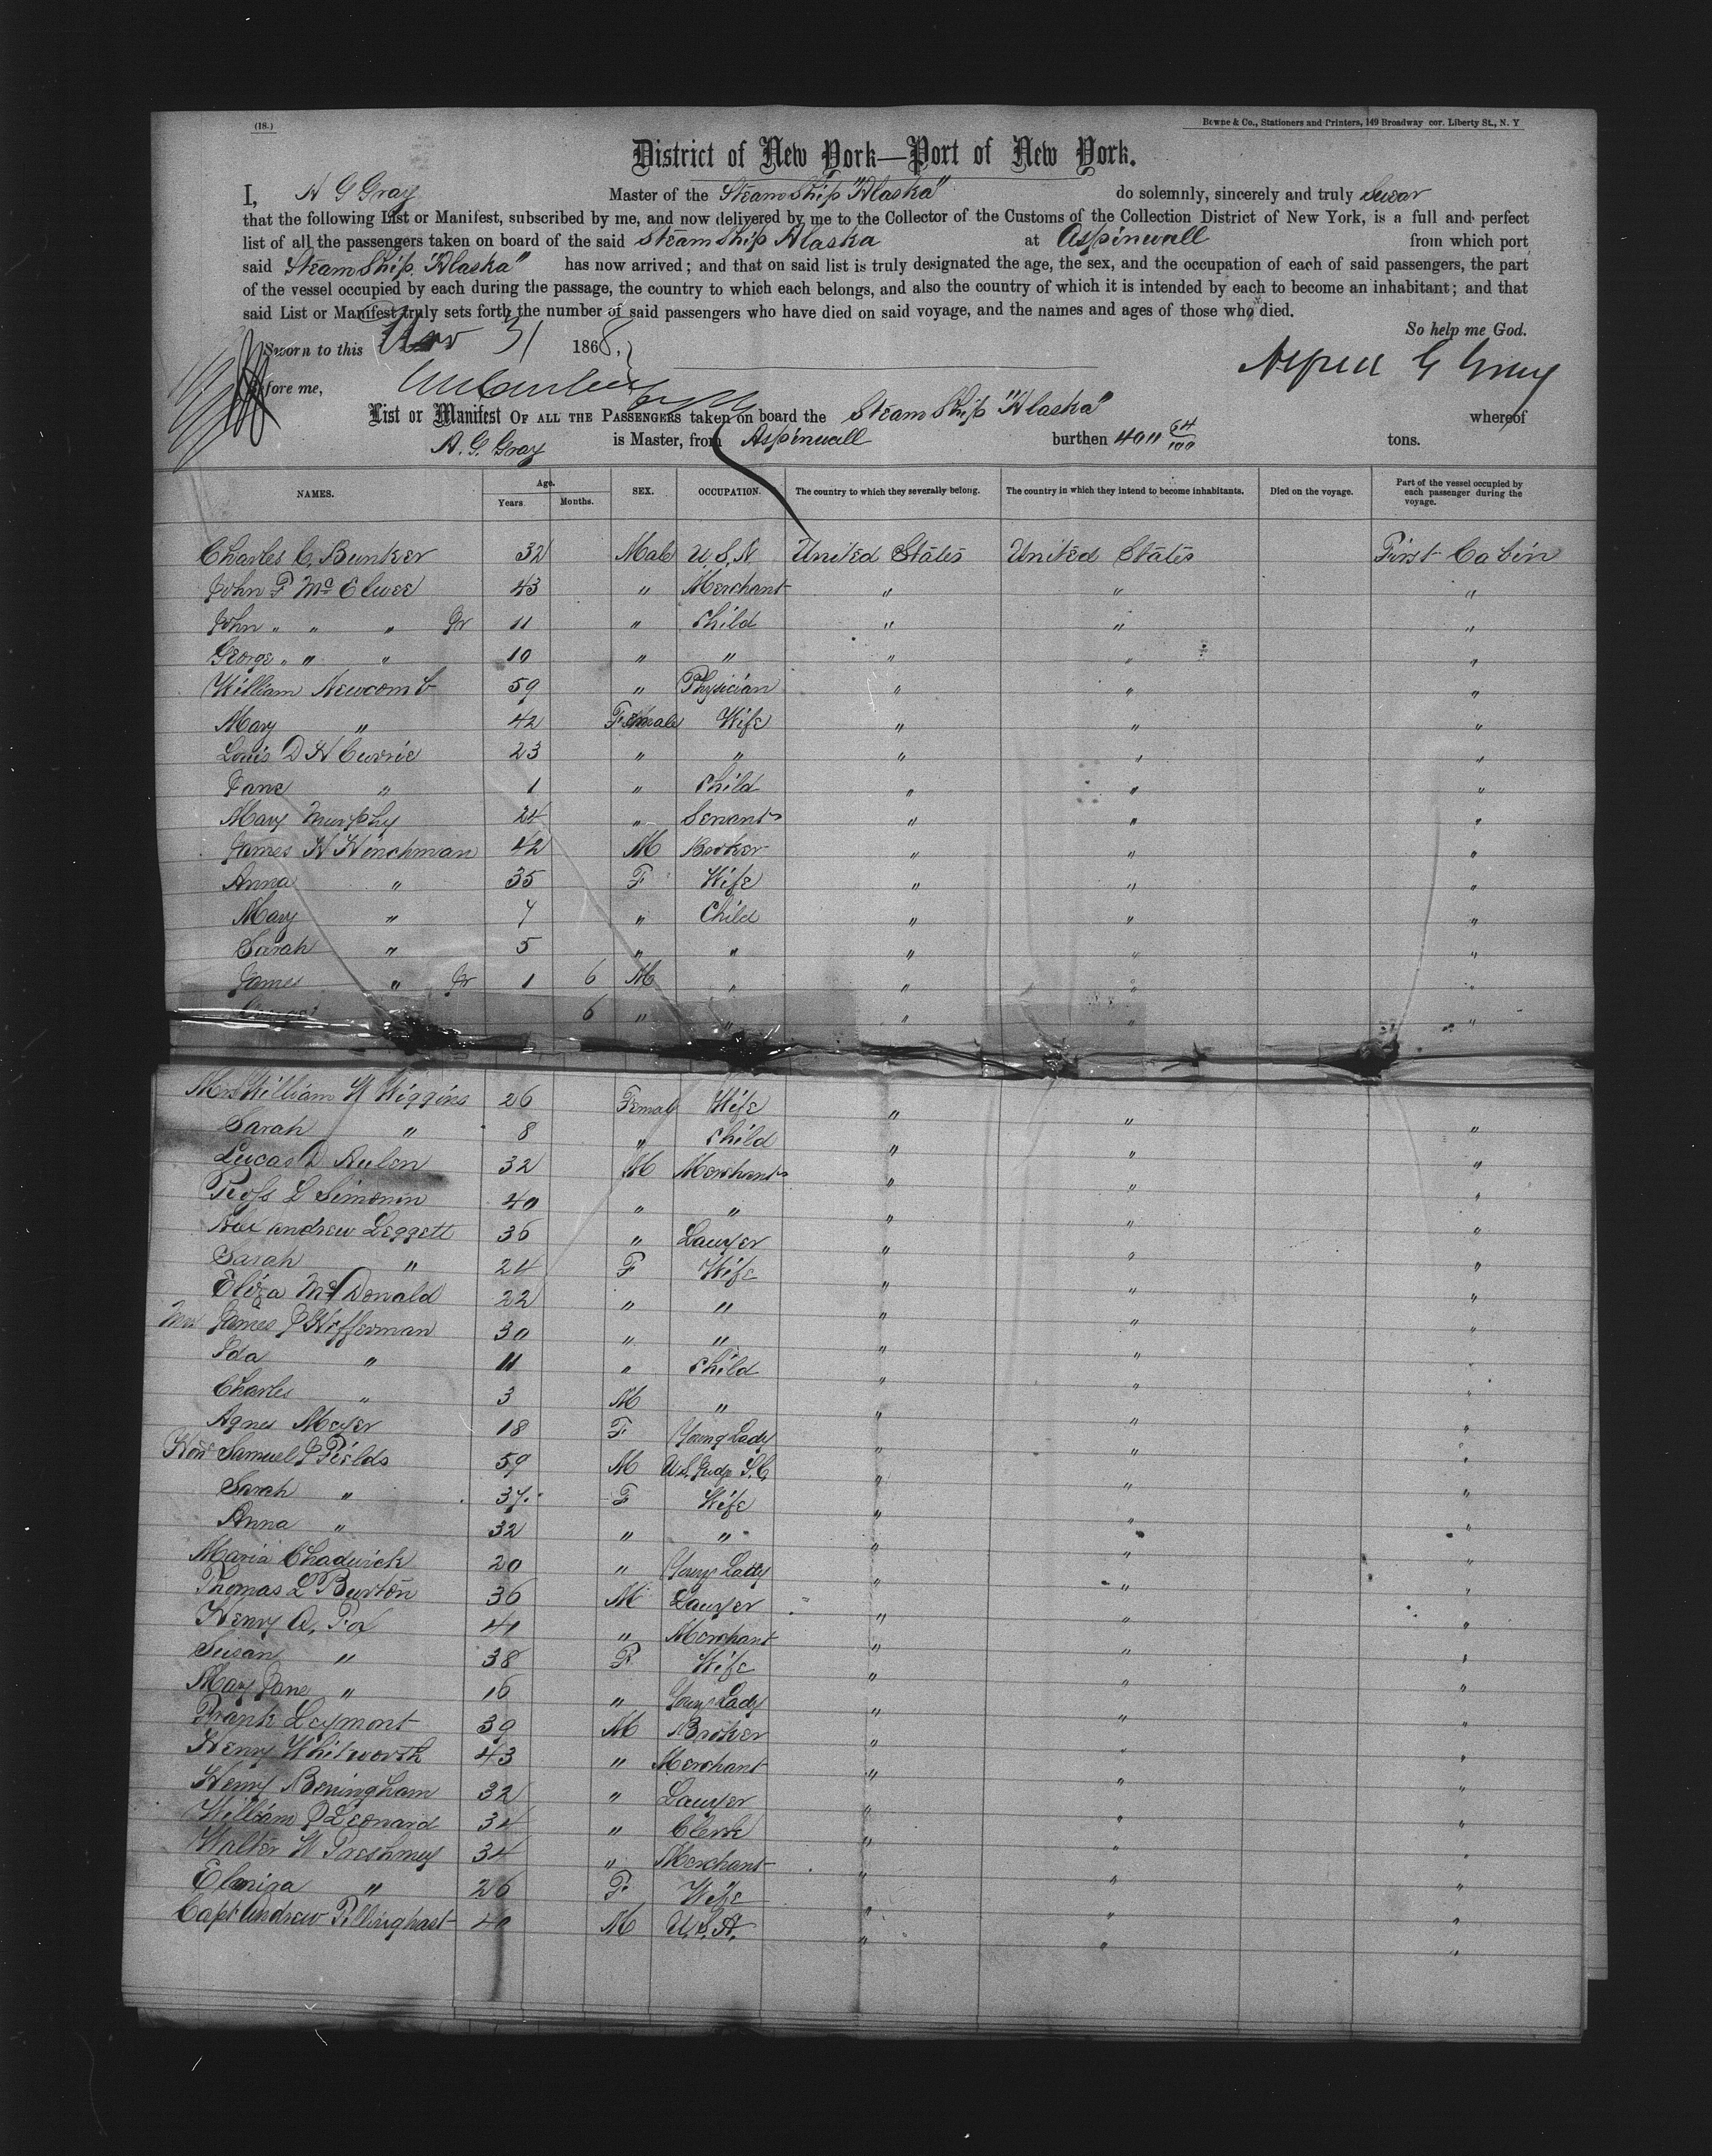 (18.)
Bowne & Co., Stationers and Printers, 149 Broadway cor. Liberty St., N. Y
District of New York—Port of New York.
I, A G Gray Master of the Steam Ship "Alaska" do solemnly, sincerely and truly Swear
that the following List or Manifest, subscribed by me, and now delivered by me to the Collector of the Customs of the Collection District of New York, is a full and perfect
list of all the passengers taken on board of the said Steam Ship Alaska at Aspinwall from which port
said Steam Ship "Alaska" has now arrived; and that on said list is truly designated the age, the sex, and the occupation of each of said passengers, the part
of the vessel occupied by each during the passage, the country to which each belongs, and also the country of which it is intended by each to become an inhabitant; and that
said List or Manifest truly sets forth the number of said passengers who have died on said voyage, and the names and ages of those who died.
So help me God.
Sworn to this 1868,
Before me, Alfred G Gray
List or Manifest OF ALL THE PASSENGERS taken on board the Steam Ship "Alaska" whereof
A. G. Gray is Master, from Aspinwall burthen 4011 64/100 tons.
NAMES. Age. Years. Months. SEX. OCCUPATION. The country to which they severally belong. The country in which they intend to become inhabitants. Died on the voyage. Part of the vessel occupied by each passenger during the voyage.
Charles C. Bunker 32 Male U.S.N United States United States First Cabin
John F McElwee 43 " Merchant " " "
John " " " Jr 11 " Child " " "
George " " " 10 " " " " "
William Newcomb 59 " Physician " " "
Mary " 42 Female Wife " " "
Louis D H Currie 23 " " " " "
Jane " 1 " Child " " "
Mary Murphy 24 " Servant " " "
James H Hinchman 42 M Broker " " "
Anna " 35 F Wife " " "
Mary " 7 " Child " " "
Sarah " 5 " " " " "
James " Jr 1 6 M " " " "
6 " " " " "
Mrs William W Wiggins 26 Female Wife " " "
Sarah " 8 " Child " " "
Lucas D 32 M Merchant " " "
L Simonin 40 " " " " "
Leggett 36 " Lawyer " " "
Sarah " 24 F Wife " " "
Eliza McDonald 22 " " " " "
Mrs James J Hefferman 30 " " " " "
Ida " 11 " Child " " "
Charles " 3 M " " " "
Agnes Meyer 18 F Young Lady " " "
Hon Samuel J Fields 59 M U.S. Judge S.C " " "
Sarah " 37 F Wife " " "
Anna " 32 " " " " "
Maria Chadwick 20 " Young Lady " " "
Thomas L Burton 36 M Lawyer " " "
Henry A. Fox 41 " Merchant " " "
Susan " 38 F Wife " " "
Mary Jane " 16 " Young Lady " " "
Frank Leymont 39 M Broker " " "
Henry Whitworth 43 " Merchant " " "
Henry Beningham 32 " Lawyer " " "
William J Leonard 34 " Clerk " " "
Walter W 34 " Merchant " " "
Elmiza " 26 F Wife " " "
Capt Andrew Tillinghast 40 M U.S.A. " " "